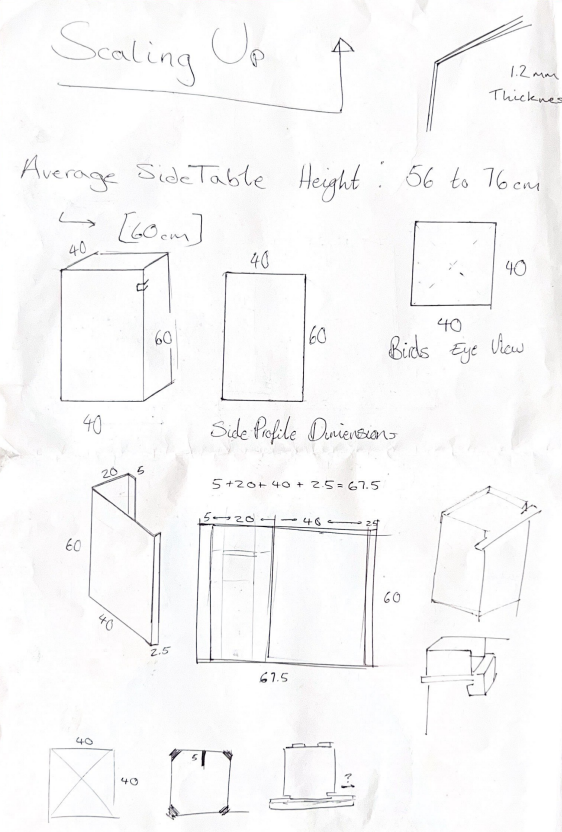 Scaling Up
1.2mm
Thicknes
Average Side Table Height : 56 to 76cm
[60cm]
40
60
40
40
60
40
40
Birds Eye View
Side Profile Dimensions
20
5
60
40
2.5
5+20+40+2.5=67.5
5 20 40 2.5
60
67.5
40
40
5
?